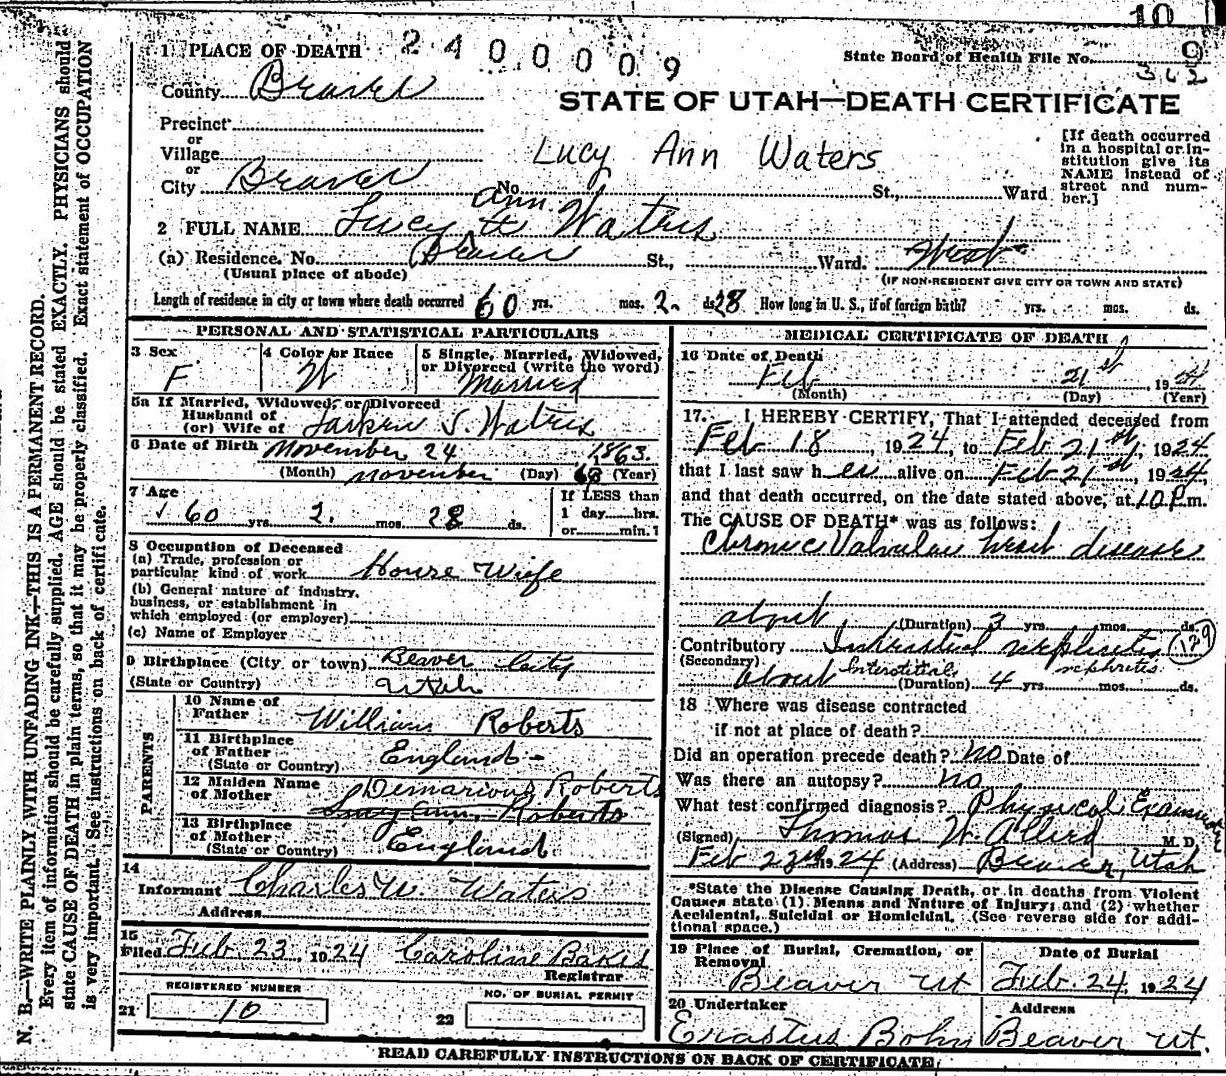 10
1 PLACE OF DEATH 2400009 State Board of Health File No. 9
362
County Beaver
STATE OF UTAH—DEATH CERTIFICATE
Precinct
or
Village
or
City Beaver No. St., Ward
Lucy Ann Waters
[If death occurred in a hospital or institution give its NAME instead of street and number.]
Ann
2 FULL NAME Lucy A Waters
(a) Residence. No. Beaver St., Ward.
(Usual place of abode) (IF NON-RESIDENT GIVE CITY OR TOWN AND STATE)
Length of residence in city or town where death occurred 60 yrs. mos. 2. ds. 28 How long in U. S., if of foreign birth? yrs. mos. ds.
PERSONAL AND STATISTICAL PARTICULARS
3 Sex F
4 Color or Race W
5 Single, Married, Widowed, or Divorced (write the word) Married
5a If Married, Widowed, or Divorced
Husband of
(or) Wife of S. Waters
6 Date of Birth November 24 1863.
(Month) november (Day) 60 (Year)
7 Age
60 yrs. 2. mos. 28 ds.
If LESS than
1 day hrs.
or min.?
8 Occupation of Deceased
(a) Trade, profession or
particular kind of work House Wife
(b) General nature of industry,
business, or establishment in
which employed (or employer)
(c) Name of Employer
9 Birthplace (City or town) Beaver City
(State or Country) Utah
PARENTS
10 Name of
Father William Roberts
11 Birthplace
of Father
(State or Country) England -
12 Maiden Name
of Mother Demarious Roberts
Lucy Ann Roberts
13 Birthplace
of Mother
(State or Country) England
14
Informant Charles W. Waters
Address
15
Filed Feb. 23, 1924 Caroline Bakes
Registrar
REGISTERED NUMBER
21 10
NO. OF BURIAL PERMIT
22
MEDICAL CERTIFICATE OF DEATH
16 Date of Death
Feb 21st, 1924
(Month) (Day) (Year)
17. I HEREBY CERTIFY, That I attended deceased from
Feb 18, 1924, to Feb 21st, 1924
that I last saw her alive on Feb 21st, 1924,
and that death occurred, on the date stated above, at 10 P.m.
The CAUSE OF DEATH* was as follows:
Chronic Valvular heart disease
about (Duration) 3 yrs. mos. ds.
Contributory Interstitial nephritis 129
(Secondary) Interstitial nephritis
about (Duration) 4 yrs. mos. ds.
18 Where was disease contracted
if not at place of death?
Did an operation precede death? no Date of
Was there an autopsy? no
What test confirmed diagnosis? Physical Examination
(Signed) Thomas W. Allred M. D.
Feb 23rd 1924 (Address) Beaver, Utah
*State the Disease Causing Death, or in deaths from Violent
Causes state (1) Means and Nature of Injury; and (2) whether
Accidental, Suicidal or Homicidal. (See reverse side for addi-
tional space.)
19 Place of Burial, Cremation, or
Removal
Beaver Ut
Date of Burial
Feb. 24, 1924
20 Undertaker
Erastus Bohn
Address
Beaver Ut.
READ CAREFULLY INSTRUCTIONS ON BACK OF CERTIFICATE
N. B.—WRITE PLAINLY WITH UNFADING INK—THIS IS A PERMANENT RECORD.
Every item of information should be carefully supplied. AGE should be stated EXACTLY. PHYSICIANS should
state CAUSE OF DEATH in plain terms, so that it may be properly classified. Exact statement of OCCUPATION
is very important. See instructions on back of certificate.